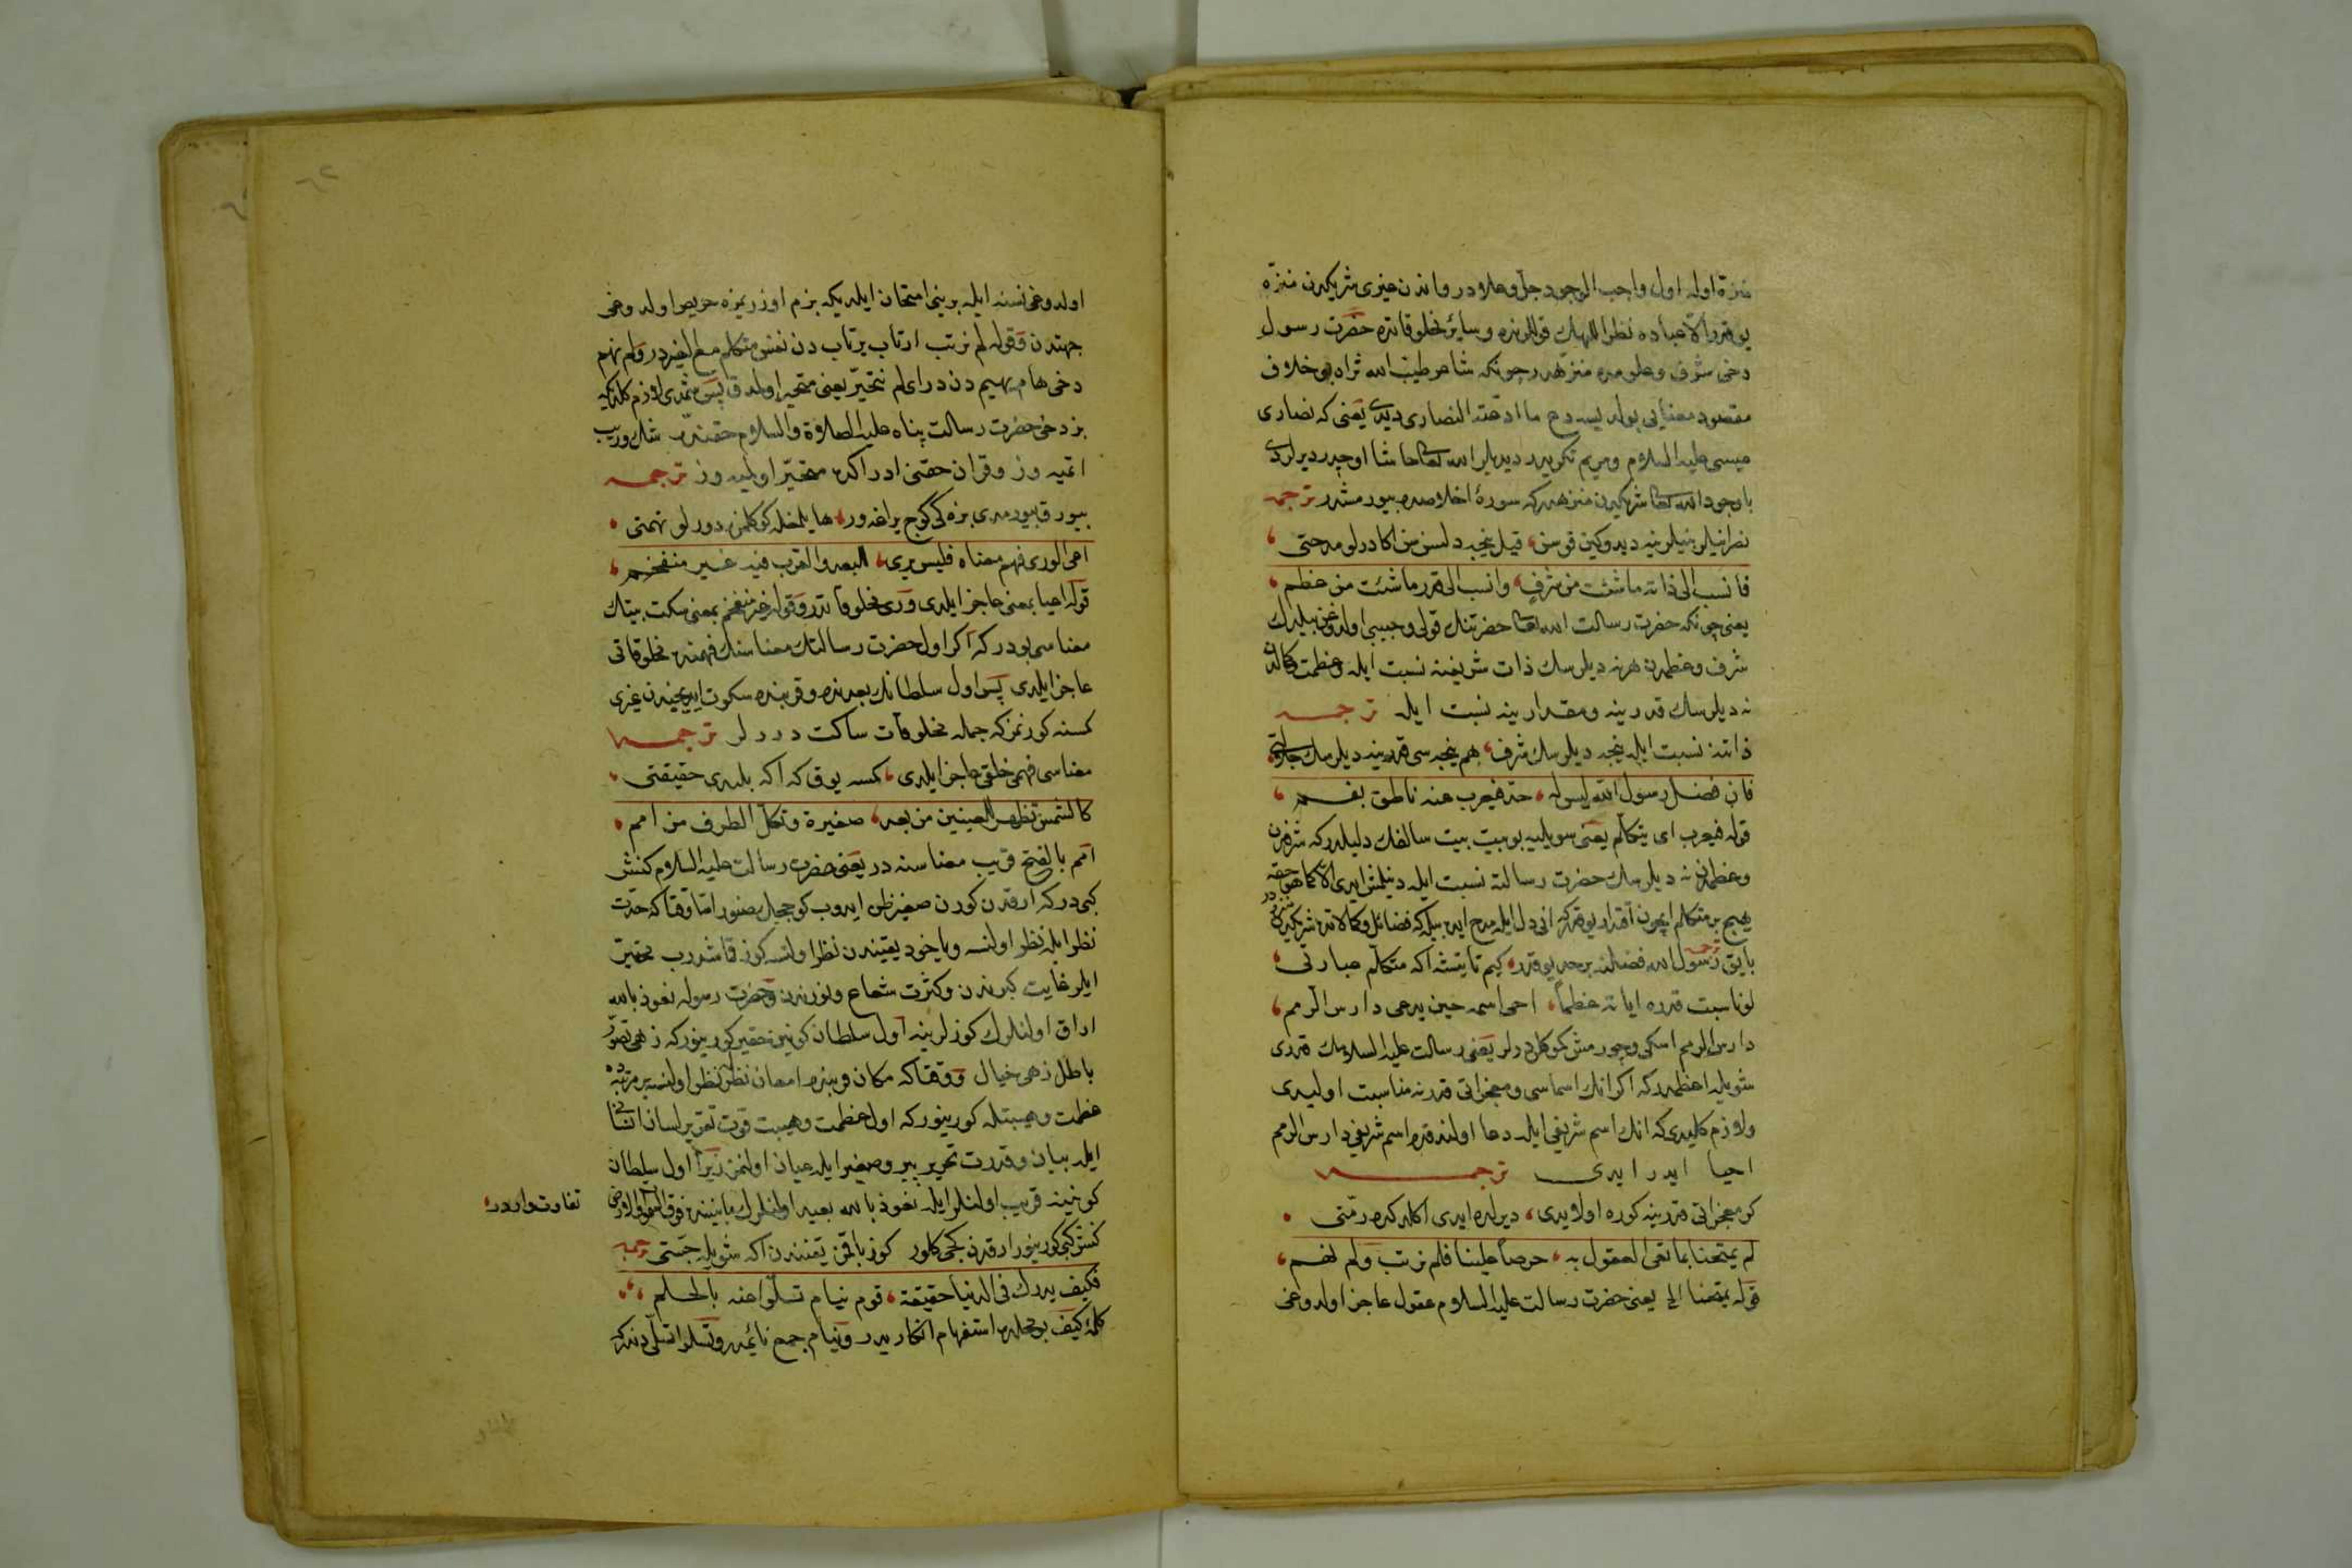 منزه اوله اول واجب الوجود جل وعلادر واندن غيرى شريكدن منزه
يوقدر الا عباده نظرا للهك قوللرنده وسائر مخلوقاتده حضرت رسول
دخى شرف وعلومده منزهدر چونكه شاعر طيب الله ثراه بو خلاف
مقصود معنايى بولديسه دع ما ادعته النصارى ديدى يعنى كه نصارى
عيسى عليه السلام ومريم تكريدر ديديلر الله تعالى حاشا اوچدر ديرلردى
باوجود الله تعالى شريكدن منزهدر كه سورۀ اخلاصده بيورمشدر ترجمه
نصرانيلر نبيلرينه ديدوكين قوسن قيل نيجه دلرسن سن اكا درلو مدحتى
فانسب الى ذاته ما شئت من شرف وانسب الى قدره ما شئت من عظم
يعنى چونكه حضرت رسالت الله تعالى حضرتنك قولى وحبيبى اولدوغن بيلدك
شرف وعظمدن هرنه ديلرسك ذات شريفنه نسبت ايله وعظمت وكمالدن
نه ديلرسك قدرينه ومقدارينه نسبت ايله ترجمه
ذاتنه نسبت ايله نيجه ديلرسك شرف هم نيجه سى قدرينه ديلرسك جلالتى
فان فضل رسول الله ليس له حد فيعرب عنه ناطق بفم
قوله فيعرب اى يتكلم يعنى سويليه بو بيت بيت سالفك دليلدر كه شرفدن
وعظمدن نه ديلرسك حضرت رسالته نسبت ايله دينلمش ايدى الا كما هو حقه
هيچ بر متكلم ايچون اقتدار يوقدر كه انى دل ايله مدح ايده بيله كه فضائل وكمالاتده شريكدن منزهدر
بايق رسول الله فضلنه بر حد يوقدر كيم تا يتشه اكه متكلم عبارتى
ترجمه
لو ناسبت قدره اياته عظما احيى اسمه حين يدعى دارس الرمم
دارس الرمم اسكى وچورمش كوكلر ديرلر يعنى رسالت عليه السلامك قدرى
شويله اعظمدر كه اكر انك اسماسى ومعجزاتى قدرنه مناسبت اوليدى
ولازم كليدى كه انك اسم شريفى ايله دعا اولنه قدم اسم شريفى دارس الرمم
احيا ايدر ايدى ترجمه
كر معجزاتى قدرينه كوره اولايدى ديرلده ايدى اكلدكده رمتى
لم يمتحنا بما تعيى العقول به حرصا علينا فلم نرتب ولم نهم
قوله يمتحنا الخ يعنى حضرت رسالت عليه السلام عقول عاجز اولدوغى
اولدوغى نسنه ايله بزى امتحان ايلمديكه بزم اوزريمزه حريص اولدوغى
جهتدن وقوله لم نرتب ارتاب يرتاب دن نفس متكلم مع الغيردر ولم نهم
دخى هام يهيم دن در اى لم نتحير يعنى متحير اولمدق پس شمدى لازم كلدى كه
بز دخى حضرت رسالت پناه عليه الصلاة والسلام حقنده شك وريب
اتميه وز وقران حقنى ادراكده متحير اولميه وز ترجمه
اعيى الورى فهم معناه فليس يرى للبعد والقرب فيه غير منفحم
قوله اعيا بمعنى عاجز ايلدى ورى مخلوقاتدر وقوله غير منفحم بمعنى سكت بيتك
معناسى بودر كه اكر اول حضرت رسالتك معناسنك فهمنه مخلوقاتى
عاجز ايلدى پس اول سلطانك بعدنده وقربنده سكوت ايديجيدن غيرى
كمسنه كورنمز كه جمله مخلوقات ساكت دررلر ترجمه
معناسى فهمى خلقى عاجز ايلدى كمسه يوق كه اكه بلدى حقيقتى
كالشمس تظهر للعينين من بعد صغيرة وتكل الطرف من امم
امم بالفتح قريب معناسنه در يعنى حضرت رسالت عليه السلام كنش
كبى در كه ارقدن كورن صغير ظن ايدوب كوججك صنور اما وقتا كه حدت
نظر ايله نظر اولنسه وياخود يقيندن نظر اولنسه كوز قاشدرب تحقير
ايلر غايت كبرندن وكثرت شعاع ونورندن وحضرت رسوله نعوذ بالله
اراق اولنلرك كوزلرينه اول سلطان كونين حقير كورينور كه زهى تصور
باطل زهى خيال ووقتا كه مكان قريبنده امعان نظرله نظر اولنسه بر مرتبه ده
عظمت وهيبتله كورينور كه اول عظمت وهيبت قوت تقرير لسان انسانى
ايله بيان وقدرت تحرير بيروصغير ايله عيان اولنمز زيرا اول سلطان
كونينه قريب اولنلر ايله نعوذ بالله بعيد اولنلرك مابيننده فوق السما والارض
تفاوت واردر
كنش كبى كورينور ارقدن كچى كلور كوز بالقر يقيندن اكه شويله جستى ترجمه
فكيف يدرك فى الدنيا حقيقته قوم نيام تسلوا عنه بالحلم
كلمۀ كيف بو محلده استفهام انكاريدر ونيام جمع نائمدر وتسلوا تسلى دندر كه